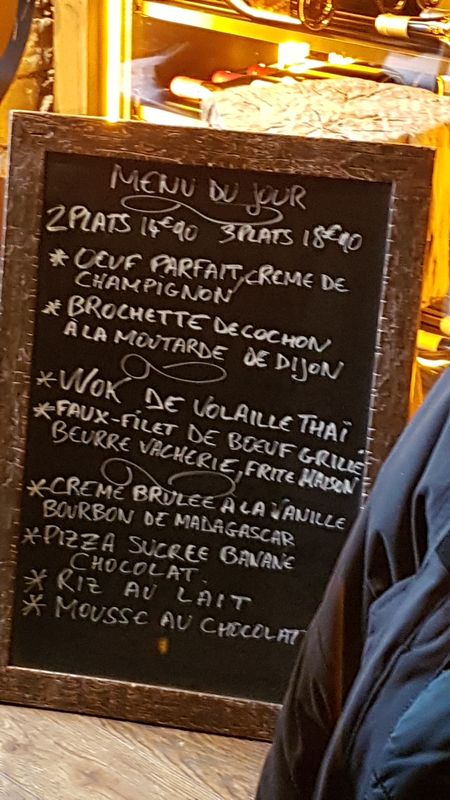 MENU DU JOUR
2 PLATS 14€90 3 PLATS 18€90
* OEUF PARFAIT, CREME DE
CHAMPIGNON
* BROCHETTE DE COCHON
A LA MOUTARDE DE DIJON
* WOK DE VOLAILLE THAÏ
* FAUX-FILET DE BOEUF GRILLE
BEURRE VACHERIE, FRITE MAISON
* CREME BRULEE A LA VANILLE
BOURBON DE MADAGASCAR
* PIZZA SUCREE BANANE
CHOCOLAT.
* RIZ AU LAIT
* MOUSSE AU CHOCOLAT